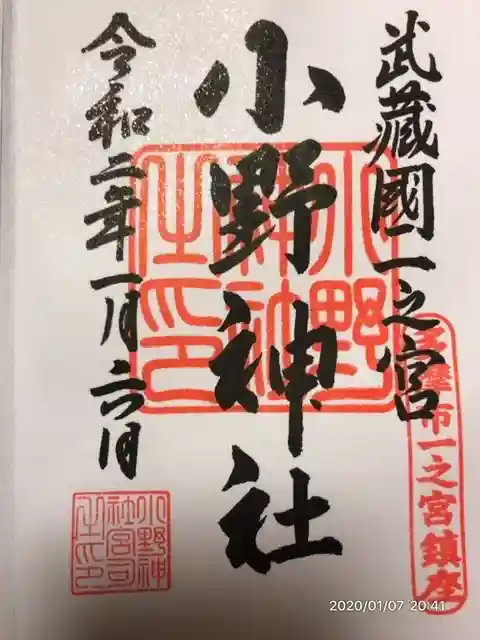 武藏國一之宮
多摩市一之宮鎮座
小野神社
小野神社之印
令和二年一月六日
小野神社宮司之印
2020/01/07 20:41